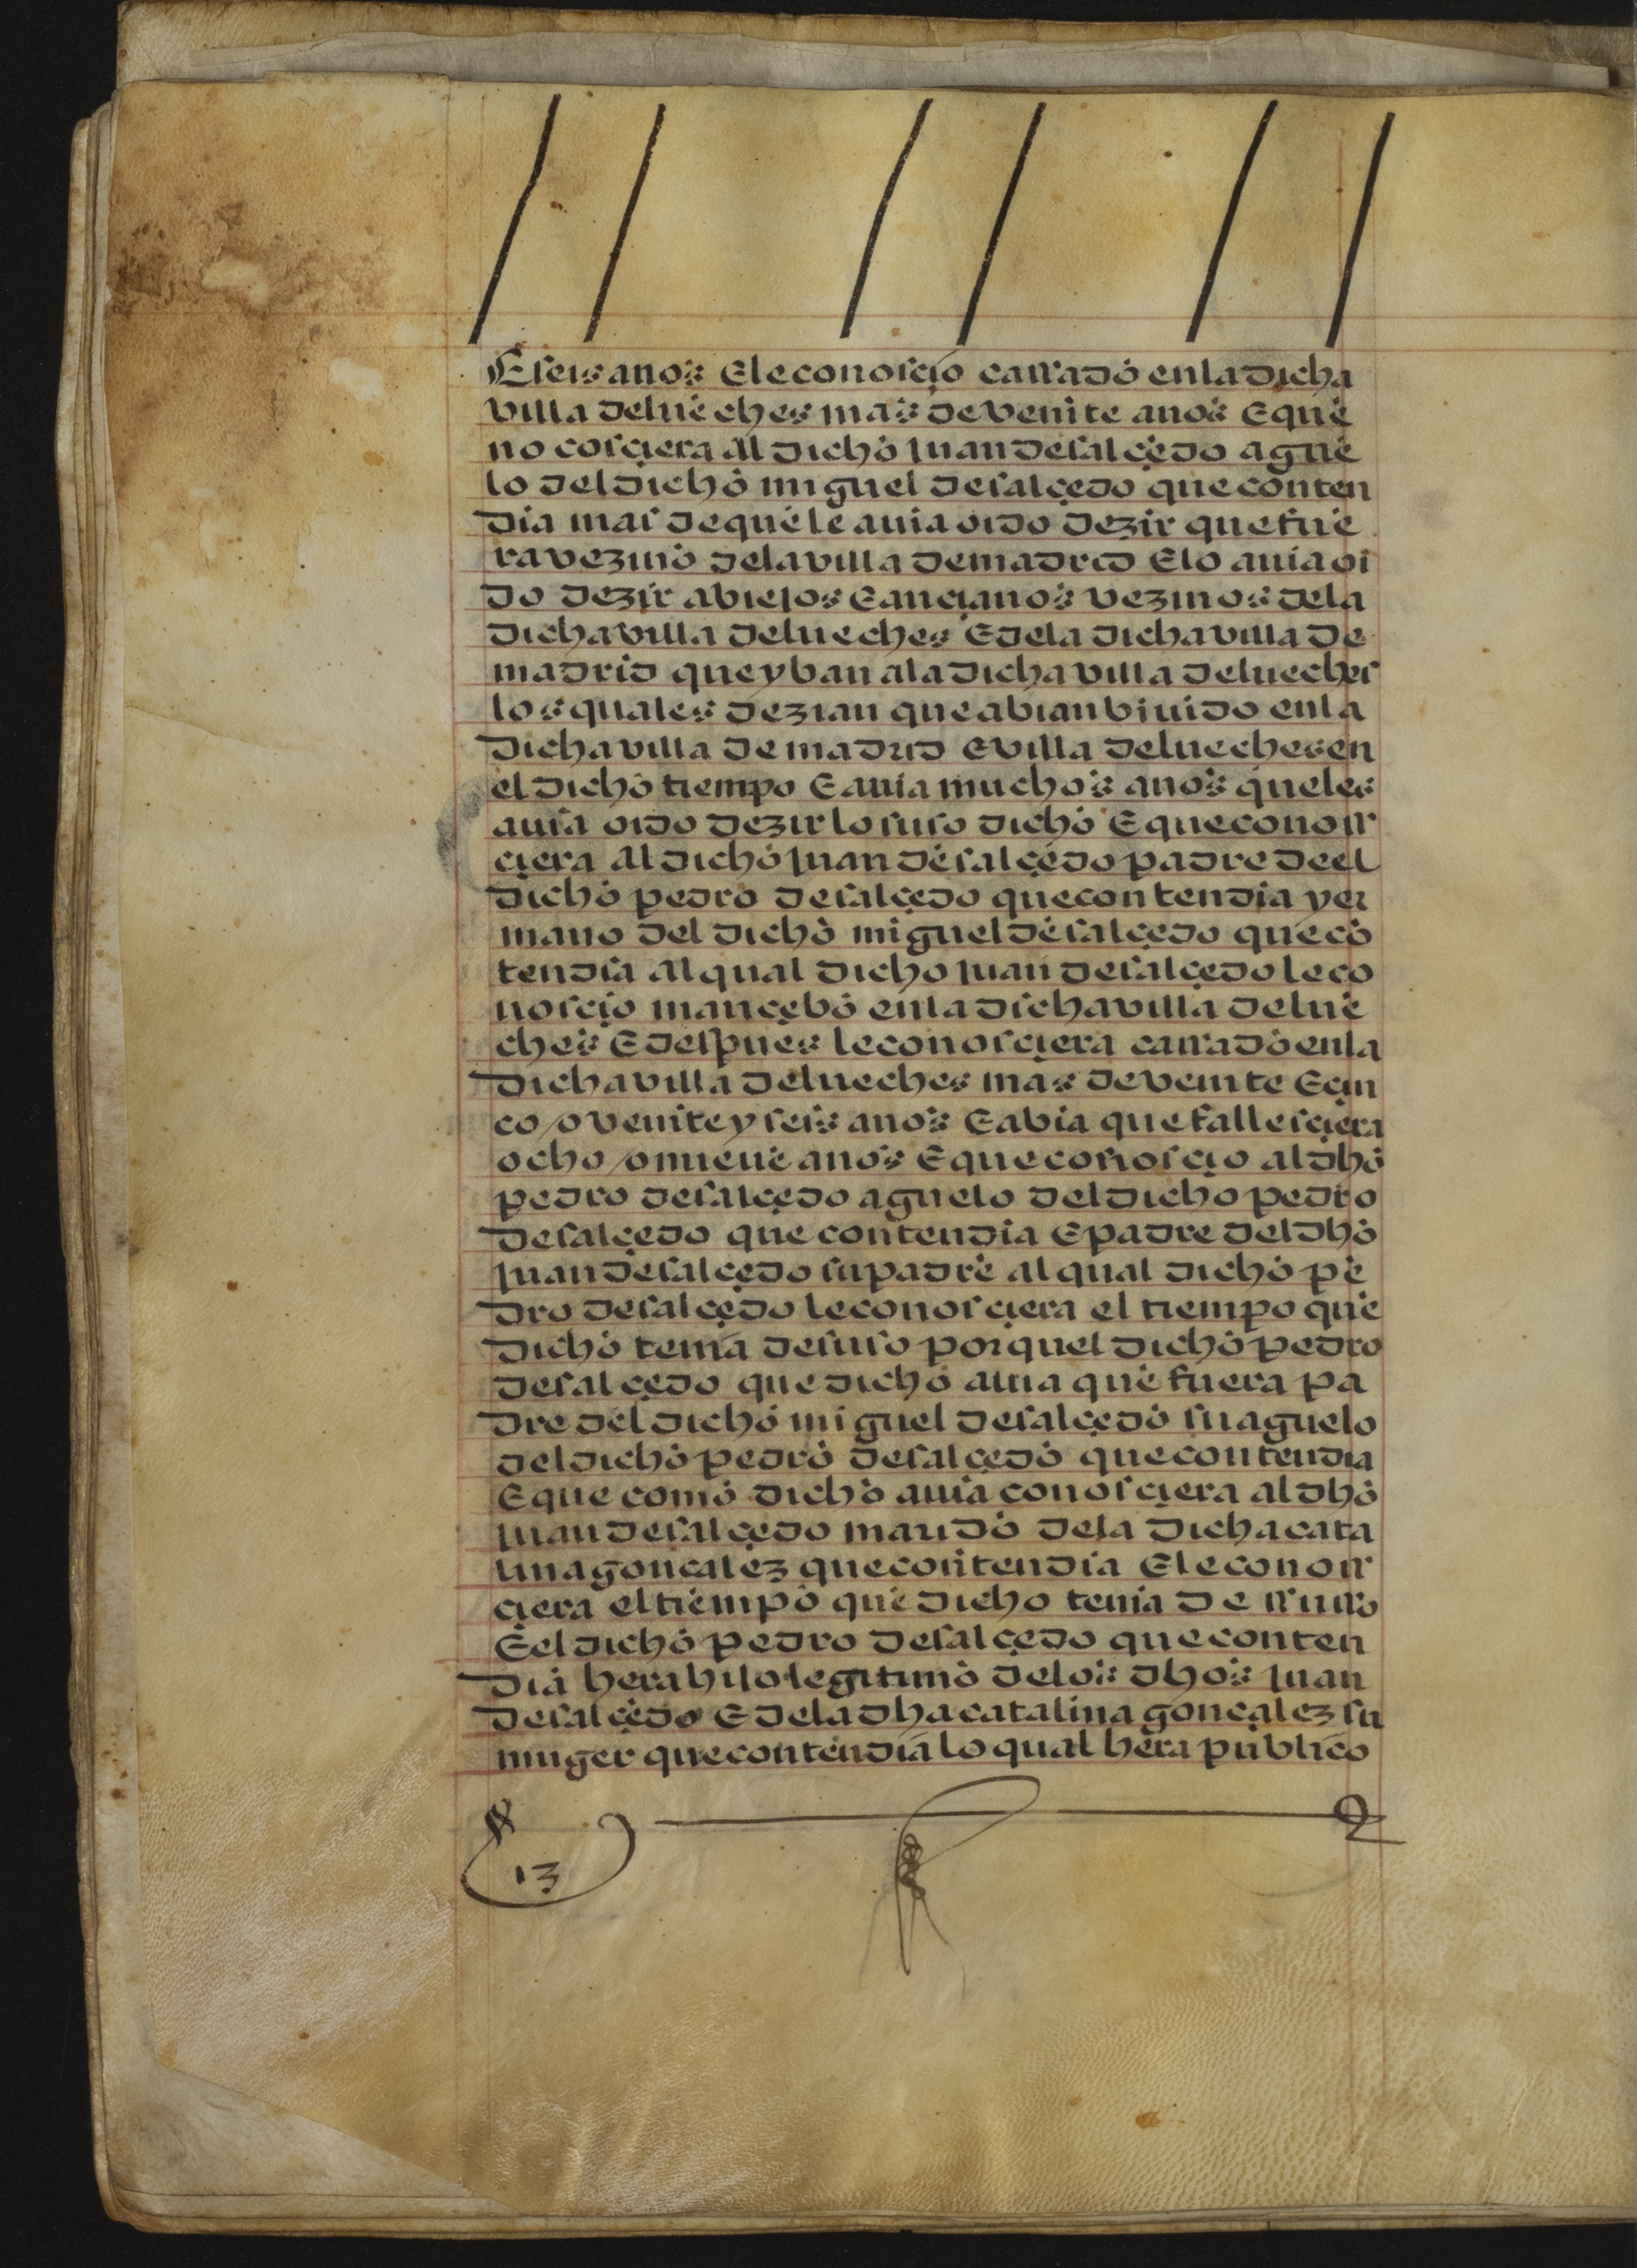 E seis anos E le conosçio cassado en la dicha
villa de lueches mas de veinte anos E que
no cosçiera al dicho juan de salçedo ague
lo del dicho miguel de salçedo que conten
dia mas de que le auia oido dezir que fue
ra vezino de la villa de madrid E lo auia oi
do dezir a biejos E ançianos vezinos de la
dicha villa de lueches E de la dicha villa de
madrid que yban a la dicha villa de lueches
los quales dezian que abian biuido en la
dicha villa de madrid E villa de lueches en
el dicho tiempo E auia muchos anos que les
auia oido dezir lo suso dicho E que conoss
çiera al dicho juan de salçedo padre de el
dicho pedro de salçedo que contendia y er
mano del dicho miguel de salçedo que cõ
tendia al qual dicho juan de salçedo le co
nosçio mançebo en la dicha villa de lue
ches E despues le conosçiera cassado en la
dicha villa de lueches mas de veinte E çin
co / o veinte y seis anos E abia que fallesçiera
ocho / o nueue anos E que conosçio al dho
pedro de salçedo aguelo del dicho pedro
de salçedo que contendia E padre del dho
juan de salçedo su padre al qual dicho pe
dro de salçedo le conosçiera el tiempo que
dicho tenia de suso porquel dicho pedro
de salçedo que dicho auia que fuera pa
dre del dicho miguel de salçedo su aguelo
del dicho pedro de salçedo que contendia
E que como dicho auia conosçiera al dho
juan de salçedo marido de la dicha cata
lina gonçalez que contendia E le conoss
çiera el tiempo que dicho tenia de ssusso
E el dicho pedro de salçedo que conten
dia hera hijo legitimo de los dhos juan
de salçedo E de la dha catalina gonçalez su
muger que contendia lo qual hera publico
13